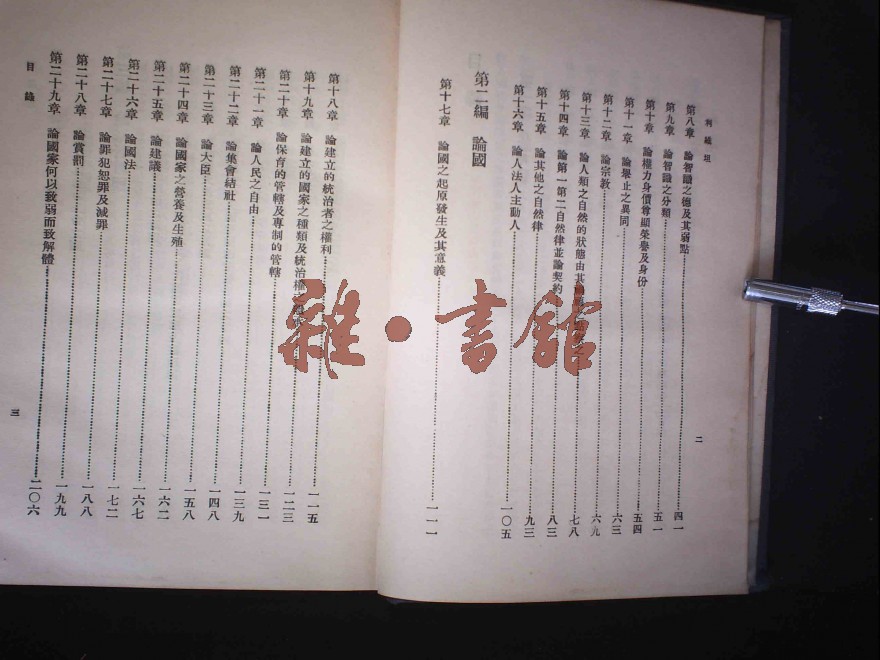 利維坦
第八章 論智識之德及其弱點 四一
第九章 論智識之分類 五一
第十章 論權力身價尊顯榮譽及身份 五四
第十一章 論舉止之異同 六三
第十二章 論宗教 六九
第十三章 論人類之自然的狀態由其 七八
第十四章 論第一第二自然律並論契約 八三
第十五章 論其他之自然律 九三
第十六章 論人法人主動人 一〇五
第二編 論國
第十七章 論國之起原發生及其意義 一一一
二
第十八章 論建立的統治者之權利 一一五
第十九章 論建立的國家之種類及統治權 一二三
第二十章 論保育的管轄及專制的管轄 一三一
第二十一章 論人民之自由 一三九
第二十二章 論集會結社 一四八
第二十三章 論大臣 一五八
第二十四章 論國家之營養及生殖 一六二
第二十五章 論建議 一六七
第二十六章 論國法 一七二
第二十七章 論罪犯恕罪及減罪 一八八
第二十八章 論賞罰 一九九
第二十九章 論國家何以致弱而致解體 二〇六
目錄
三
雜·書館